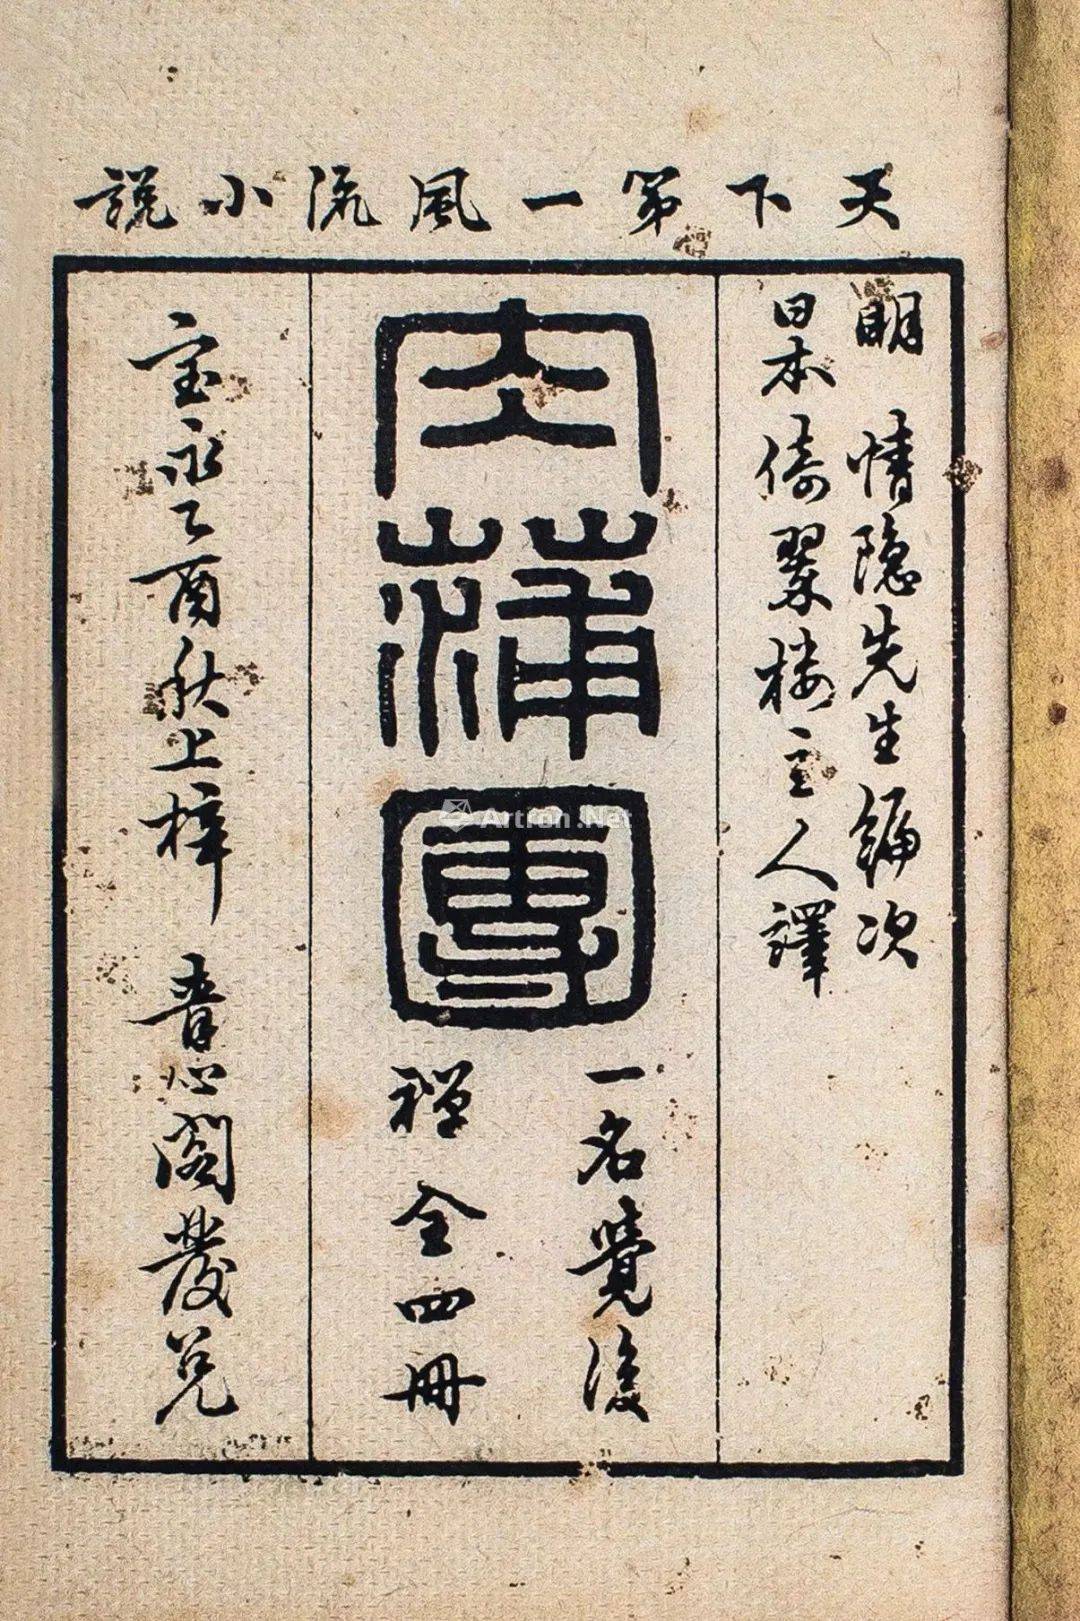 天下第一風流小説
明 情隠先生編次
日本倚翠楼主人譯
肉蒲團
一名覺後
禅 全四冊
宝永乙酉秋上梓 青心閣發兌
Artron.Net